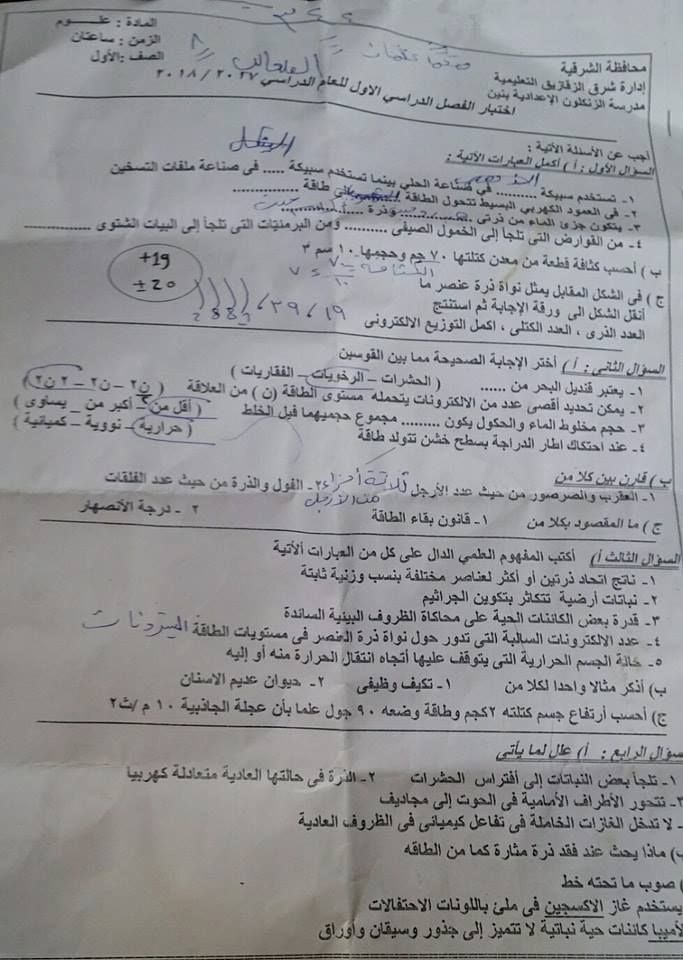 محافظة الشرقية
إدارة شرق الزقازيق التعليمية
مدرسة الزنكلون الإعدادية بنين
المادة : علـــوم
الزمن : ساعتان
الصف :الأول
اختبار الفصل الدراسي الاول للعام الدراسي ٢٠١٧ / ٢٠١٨
أجب عن الأسئلة الأتية :
السؤال الأول : أ ) أكمل العبارات الأتية :
١- تستخدم سبيكة ......... فى صناعة الحلي بينما تستخدم سبيكة ..... فى صناعة ملفات التسخين
٢- فى العمود الكهربي البسيط تتحول الطاقة ......... إلى طاقة ............
٣- يتكون جزئ الماء من ذرتى ......... وذرة .........
٤- من القوارض التى تلجأ إلى الخمول الصيفى .......... ومن البرمنيات التى تلجأ إلى البيات الشتوى ............
ب ) أحسب كثافة قطعة من معدن كتلتها ٧٠ جم وحجمها ١٠ سم ٣
الكثافة = ٧٠/١٠ = ٧
ج ) فى الشكل المقابل يمثل نواة ذرة عنصر ما
+19
± 20
أنقل الشكل الى ورقة الإجابة ثم استنتج
١٩ ، ٣٩ ، 2 8 8 2
العدد الذرى ، العدد الكتلى ، اكمل التوزيع الالكترونى
السؤال الثانى : أ ) أختر الإجابة الصحيحة مما بين القوسين
١- يعتبر قنديل البحر من ...... ( الحشرات – الرخويات – الفقاريات )
٢- يمكن تحديد أقصى عدد من الالكترونات يتحمله مستوى الطاقة (ن ) من العلاقة ( ن٢ – ن٢ – ٢ ن٢ )
٣- حجم مخلوط الماء والحكول يكون ......... مجموع حجميهما قبل الخلط ( أقل من – أكبر من _ يساوى )
٤- عند احتكاك اطار الدراجة بسطح خشن تتولد طاقة ( حرارية – نووية – كميانية )
ب ) قارن بين كلا من
١- العقرب والصرصور من حيث عدد الأرجل ثلاثة أجزاء من الأرجل ٢- الفول والذرة من حيث عدد الفلقات
ج ) ما المقصود بكلا من ١- قانون بقاء الطاقة ٢ - درجة الأنصهار
السؤال الثالث أ ) أكتب المفهوم العلمي الدال على كل من العبارات ألأتية
١- ناتج اتحاد ذرتين أو أكثر لعناصر مختلفة بنسب وزنية ثابتة
٢- نباتات أرضية تتكاثر بتكوين الجراثيم
٣- قدرة بعض الكائنات الحية على محاكاة الظروف البينية الساندة
٤- عدد الالكترونات السالبة التى تدور حول نواة ذرة العنصر فى مستويات الطاقة
٥- حالة الجسم الحرارية التى يتوقف عليها أتجاه انتقال الحرارة منه أو إليه
ب) أذكر مثالا واحدا لكلا من ١- تكيف وظيفى ٢- حيوان عديم الاسنان
ج) أحسب أرتفاع جسم كتلته ٢كجم وطاقة وضعه ٩٠ جول علما بأن عجلة الجاذبية ١٠ م /ث٢
سؤال الرابع : أ ) علل لما يأتى
١- تلجأ بعض النباتات إلى أفتراس الحشرات ٢- الذرة فى حالتها العادية متعادلة كهربيا
٣- تتحور الأطراف الأمامية فى الحوت إلى مجاديف
- لا تدخل الغازات الخاملة فى تفاعل كيميانى فى الظروف العادية
ب) ماذا يحث عند فقد ذرة مثارة كما من الطاقه
) صوب ما تحته خط
يستخدم غاز الاكسجين فى ملئ باللونات الاحتفالات
لأميبا كائنات حية نباتية لا تتميز إلى جذور وسيقان وأوراق